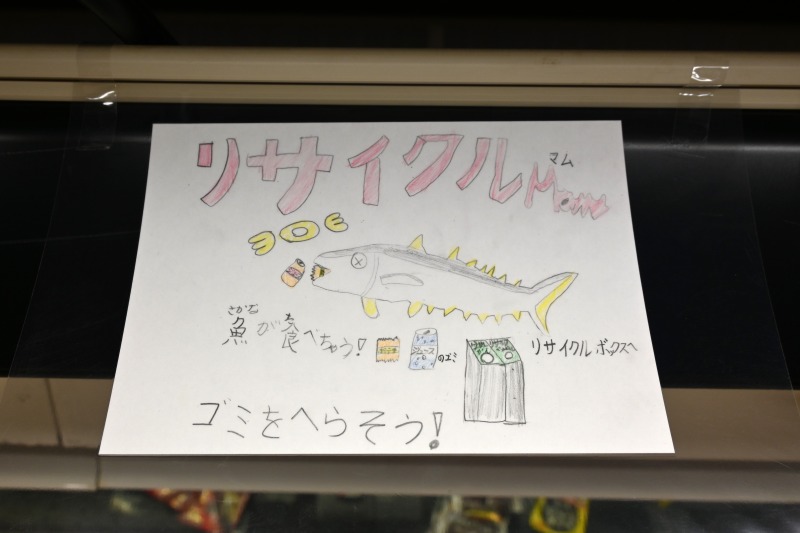 マム
リサイクル Mam
さかな
魚が食べちゃう!
ジュース
のゴミ
リサイクルボックスへ
ゴミをへらそう!